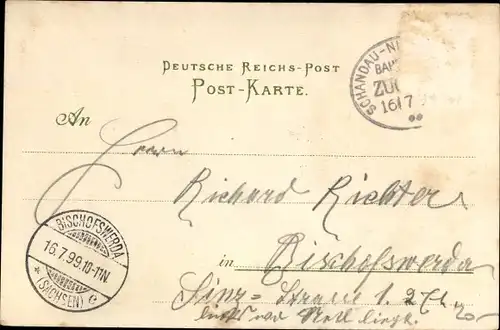 DEUTSCHE REICHS-POST
POST-KARTE.
SCHANDAU-NI
BAH
ZUG
16 7
An
Herrn
Richard Richter
in Bischofswerda
BISCHOFSWERDA
16.7.99.10-11N.
* (SACHSEN) c
Strasse 1.